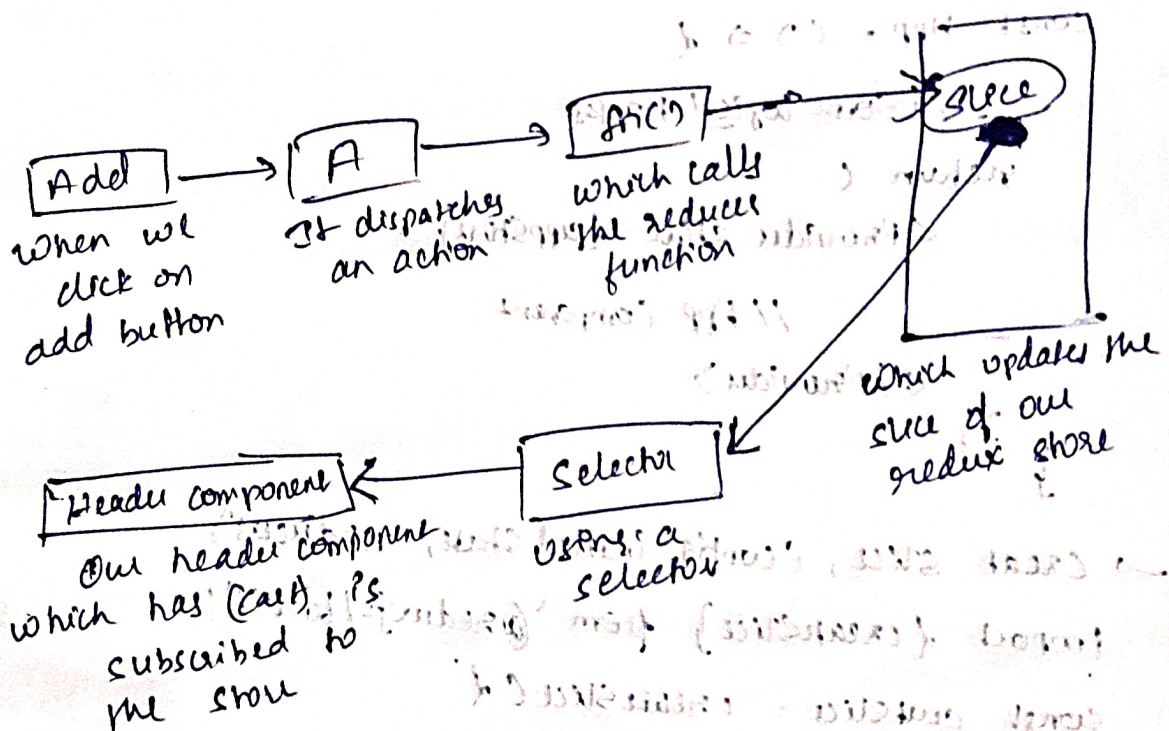 Add
When we
click on
add button
A
It dispatches
an action
fn()
which calls
the reducer
function
slice
which updates the
slice of our
redux store
Selector
using a
selector
Header component
Our header component
which has (cart). is
subscribed to
the store